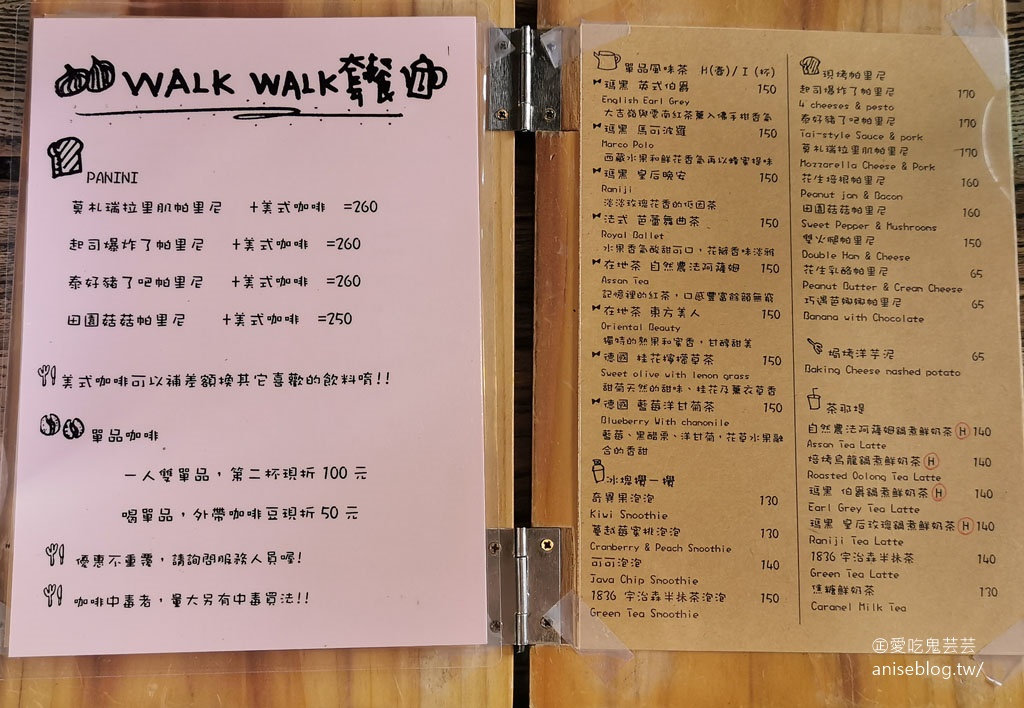 WALK WALK套餐
PANINI
莫札瑞拉里肌帕里尼 +美式咖啡 =260
起司爆炸了帕里尼 +美式咖啡 =260
泰好豬了吧帕里尼 +美式咖啡 =260
田園菇菇帕里尼 +美式咖啡 =250
美式咖啡可以補差額換其它喜歡的飲料唷!!
單品咖啡
一人雙單品，第二杯現折 100 元
喝單品，外帶咖啡豆現折 50 元
優惠不重覆，請詢問服務人員喔!
咖啡中毒者，量大另有中毒買法!!
單品風味茶 H(壺)/I(杯)
瑪黑 英式伯爵 150
English Earl Grey
大吉嶺與雲南紅茶薰入佛手柑香氣
瑪黑 馬可波羅 150
Marco Polo
西藏水果和鮮花香氣再以蜂蜜提味
瑪黑 皇后晚安 150
Raniji
淡淡玫瑰花香的低因茶
法式 芭蕾舞曲茶 150
Royal Ballet
水果香氣酸甜可口，花瓣香味淡雅
在地茶 自然農法阿薩姆 150
Assan Tea
記憶裡的紅茶，口感豐富餘韻無窮
在地茶 東方美人 150
Oriental Beauty
獨特的熟果和蜜香，甘醇甜美
德國 桂花檸檬草茶 150
Sweet olive with lemon grass
甜菊天然的甜味、桂花及薰衣草香
德國 藍莓洋甘菊茶 150
Blueberry With chanomile
藍莓、黑醋栗、洋甘菊，花草水果融
合的香甜
冰塊攪一攪
奇異果泡泡 130
Kiwi Smoothie
蔓越莓蜜桃泡泡 130
Cranberry & Peach Smoothie
可可泡泡 140
Java Chip Smoothie
1836 宇治森半抹茶泡泡 150
Green Tea Smoothie
現烤帕里尼
起司爆炸了帕里尼 170
4 cheeses & pesto
泰好豬了吧帕里尼 170
Tai-style Sauce & pork
莫札瑞拉里肌帕里尼 170
Mozzarella Cheese & Pork
花生培根帕里尼 160
Peanut jan & Bacon
田園菇菇帕里尼 160
Sweet Pepper & Mushrooms
雙火腿帕里尼 150
Double Han & Cheese
花生乳酪帕里尼 65
Peanut Butter & Cream Cheese
巧遇芭娜娜帕里尼 65
Banana with Chocolate
焗烤洋芋泥 65
Baking Cheese nashed potato
茶那堤
自然農法阿薩姆鍋煮鮮奶茶 H 140
Assan Tea Latte
焙烤烏龍鍋煮鮮奶茶 H 140
Roasted Oolong Tea Latte
瑪黑 伯爵鍋煮鮮奶茶 H 140
Earl Grey Tea Latte
瑪黑 皇后玫瑰鍋煮鮮奶茶 H 140
Raniji Tea Latte
1836 宇治森半抹茶 140
Green Tea Latte
焦糖鮮奶茶 130
Caranel Milk Tea
㊣愛吃鬼芸芸
aniseblog.tw/